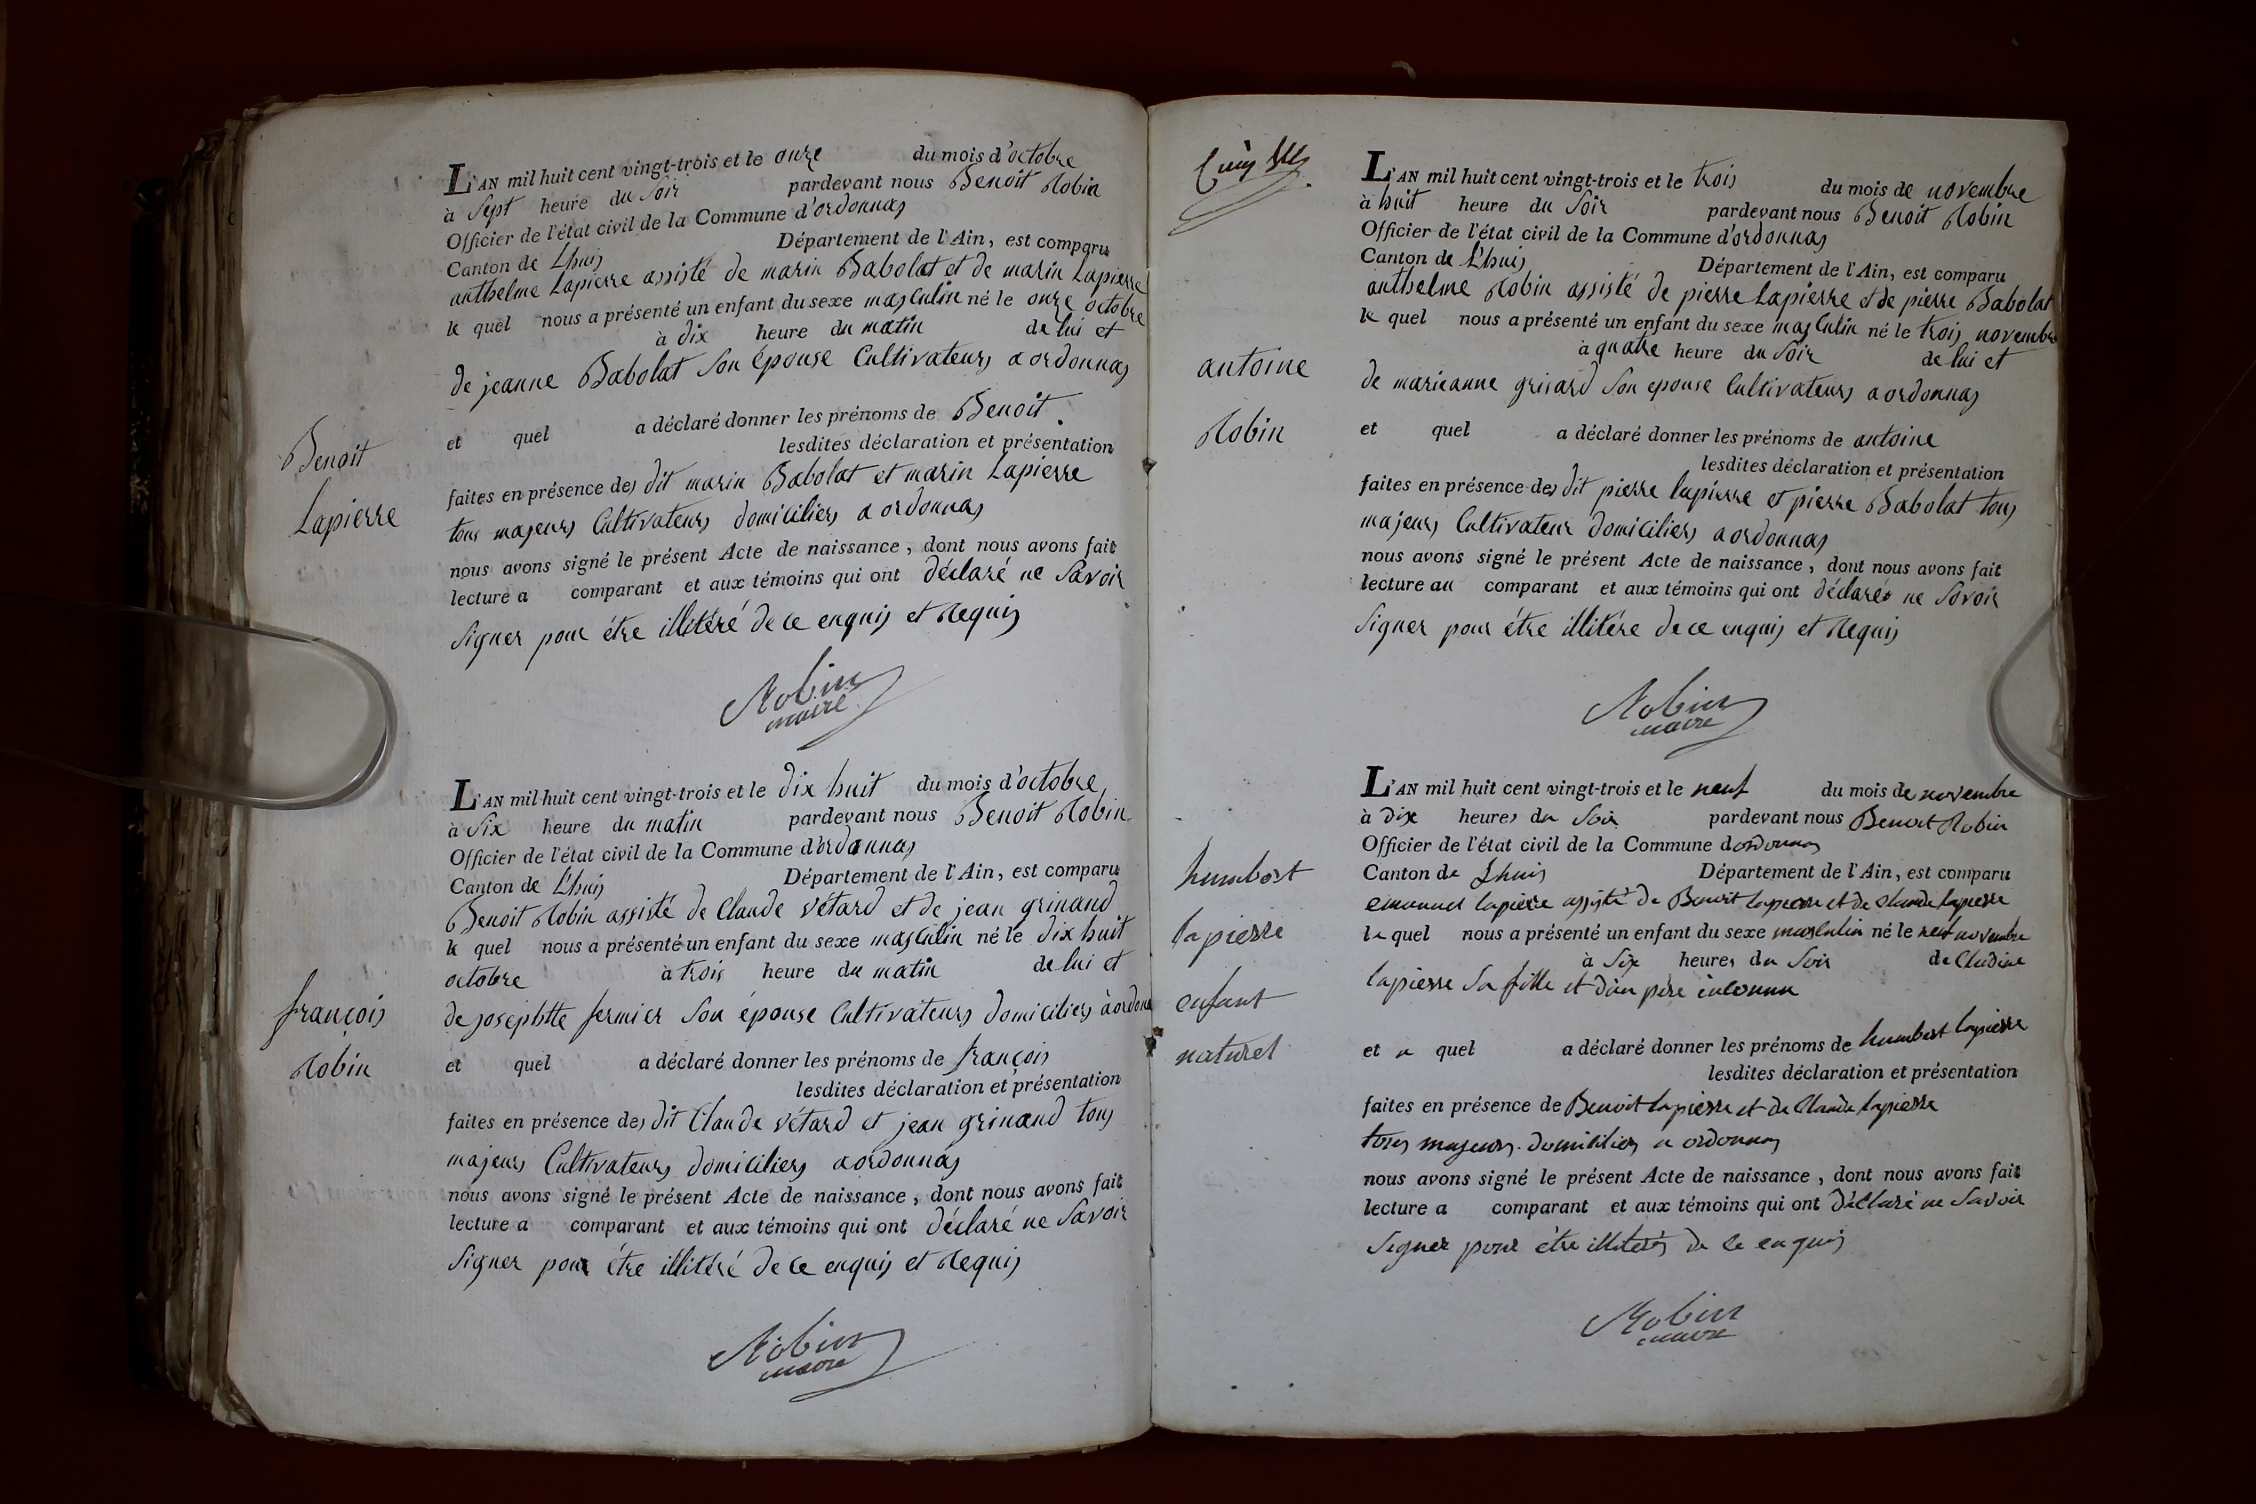 L'AN mil huit cent vingt-trois et le onze du mois d'octobre
à Sept heure du Soir pardevant nous Benoit Robin
Officier de l'état civil de la Commune d'ordonnas
Canton de Lhuis Département de l'Ain, est comparu
anthelme Lapierre assisté de marin Babolat et de marin Lapierre
le quel nous a présenté un enfant du sexe masculin né le onze octobre
à dix heure du matin de lui et
de jeanne Babolat Son épouse Cultivateurs a ordonnas
et quel a déclaré donner les prénoms de Benoit
lesdites déclaration et présentation
Benoit
Lapierre
faites en présence des dit marin Babolat et marin Lapierre
tous majeurs Cultivateurs domiciliers a ordonnas
nous avons signé le présent Acte de naissance, dont nous avons fait
lecture a comparant et aux témoins qui ont déclaré ne Savoir
Signer pour étre illitéré de ce enquis et Requis
Robin
maire
L'AN mil huit cent vingt-trois et le dix huit du mois d'octobre
à Six heure du matin pardevant nous Benoit Robin
Officier de l'état civil de la Commune d'ordonnas
Canton de L'huis Département de l'Ain, est comparu
Benoit Robin assisté de Claude Vétard et de jean grinand
le quel nous a présenté un enfant du sexe masculin né le dix huit
octobre à trois heure du matin de lui et
de josephtte fermier Son épouse Cultivateurs domiciliers à ordona
françois
Robin
et quel a déclaré donner les prénoms de françois
lesdites déclaration et présentation
faites en présence des dit Claude Vétard et jean grinand tous
majeurs Cultivateurs domiciliers a ordonnas
nous avons signé le présent Acte de naissance, dont nous avons fait
lecture a comparant et aux témoins qui ont déclaré ne Savoir
Signer pour étre illitéré de ce enquis et Requis
Robin
maire
L'AN mil huit cent vingt-trois et le trois du mois de novembre
à huit heure du Soir pardevant nous Benoit Robin
Officier de l'état civil de la Commune d'ordonnas
Canton de L'huis Département de l'Ain, est comparu
anthelme Robin assisté de pierre Lapierre et de pierre Babolat
le quel nous a présenté un enfant du sexe masculin né le trois novembre
à quatre heure du Soir de lui et
de marieanne grivard Son epouse Cultivateurs a ordonnas
antoine
Robin
et quel a déclaré donner les prénoms de antoine
lesdites déclaration et présentation
faites en présence des dit pierre lapierre et pierre Babolat tous
majeurs Cultivateur domiciliers a ordonnas
nous avons signé le présent Acte de naissance, dont nous avons fait
lecture au comparant et aux témoins qui ont déclarés ne Savoir
Signer pour étre illitére de ce enquis et Requis
Robin
maire
L'AN mil huit cent vingt-trois et le neuf du mois de novembre
à dix heures du Soir pardevant nous Benoit Robin
Officier de l'état civil de la Commune dordonnas
Canton de Lhuis Département de l'Ain, est comparu
emanuel lapierre assisté de Benoit lapierre et de claude lapierre
le quel nous a présenté un enfant du sexe masculin né le neuf novembre
à Six heures du Soir de Cludine
lapierre Sa fille et d'un père inconnu
humbert
lapierre
enfant
naturel
et a quel a déclaré donner les prénoms de humbert lapierre
lesdites déclaration et présentation
faites en présence de Benoit lapierre et de Claude lapierre
tous majeurs domiciliers a ordonnas
nous avons signé le présent Acte de naissance, dont nous avons fait
lecture a comparant et aux témoins qui ont déclaré ne Savoir
Signer pour être illiterés de ce enquis
Robin
maire